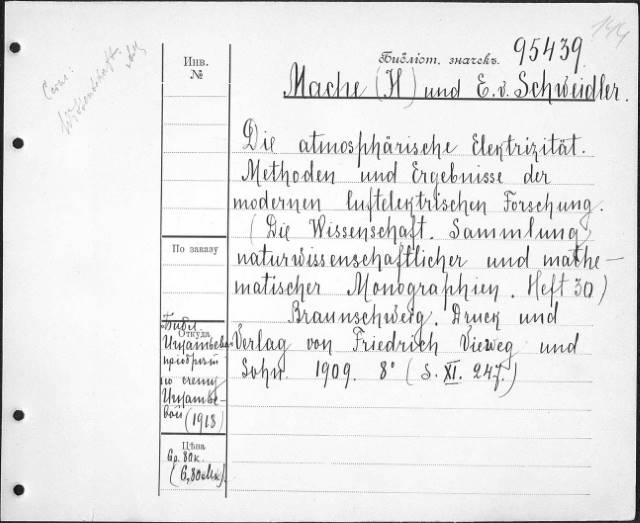 144
Библіот. значекъ. 95439.
Инв.
№
Mache (H) und E. v. Schweidler.
Die atmosphärische Elektrizität.
Methoden und Ergebnisse der
modernen luftelektrischen Forschung.
(Die Wissenschaft. Sammlung
naturwissenschaftlicher und mathe-
matischer Monographien. Heft 30)
Braunschweig. Druck und
Verlag von Friedrich Vieweg und
Sohn. 1909. 8° (S. XI. 247.)
По заказу
Откуда
Библ.
по счету
(1913)
Цѣна
6 р. 80 к.
(6,80 Mk).